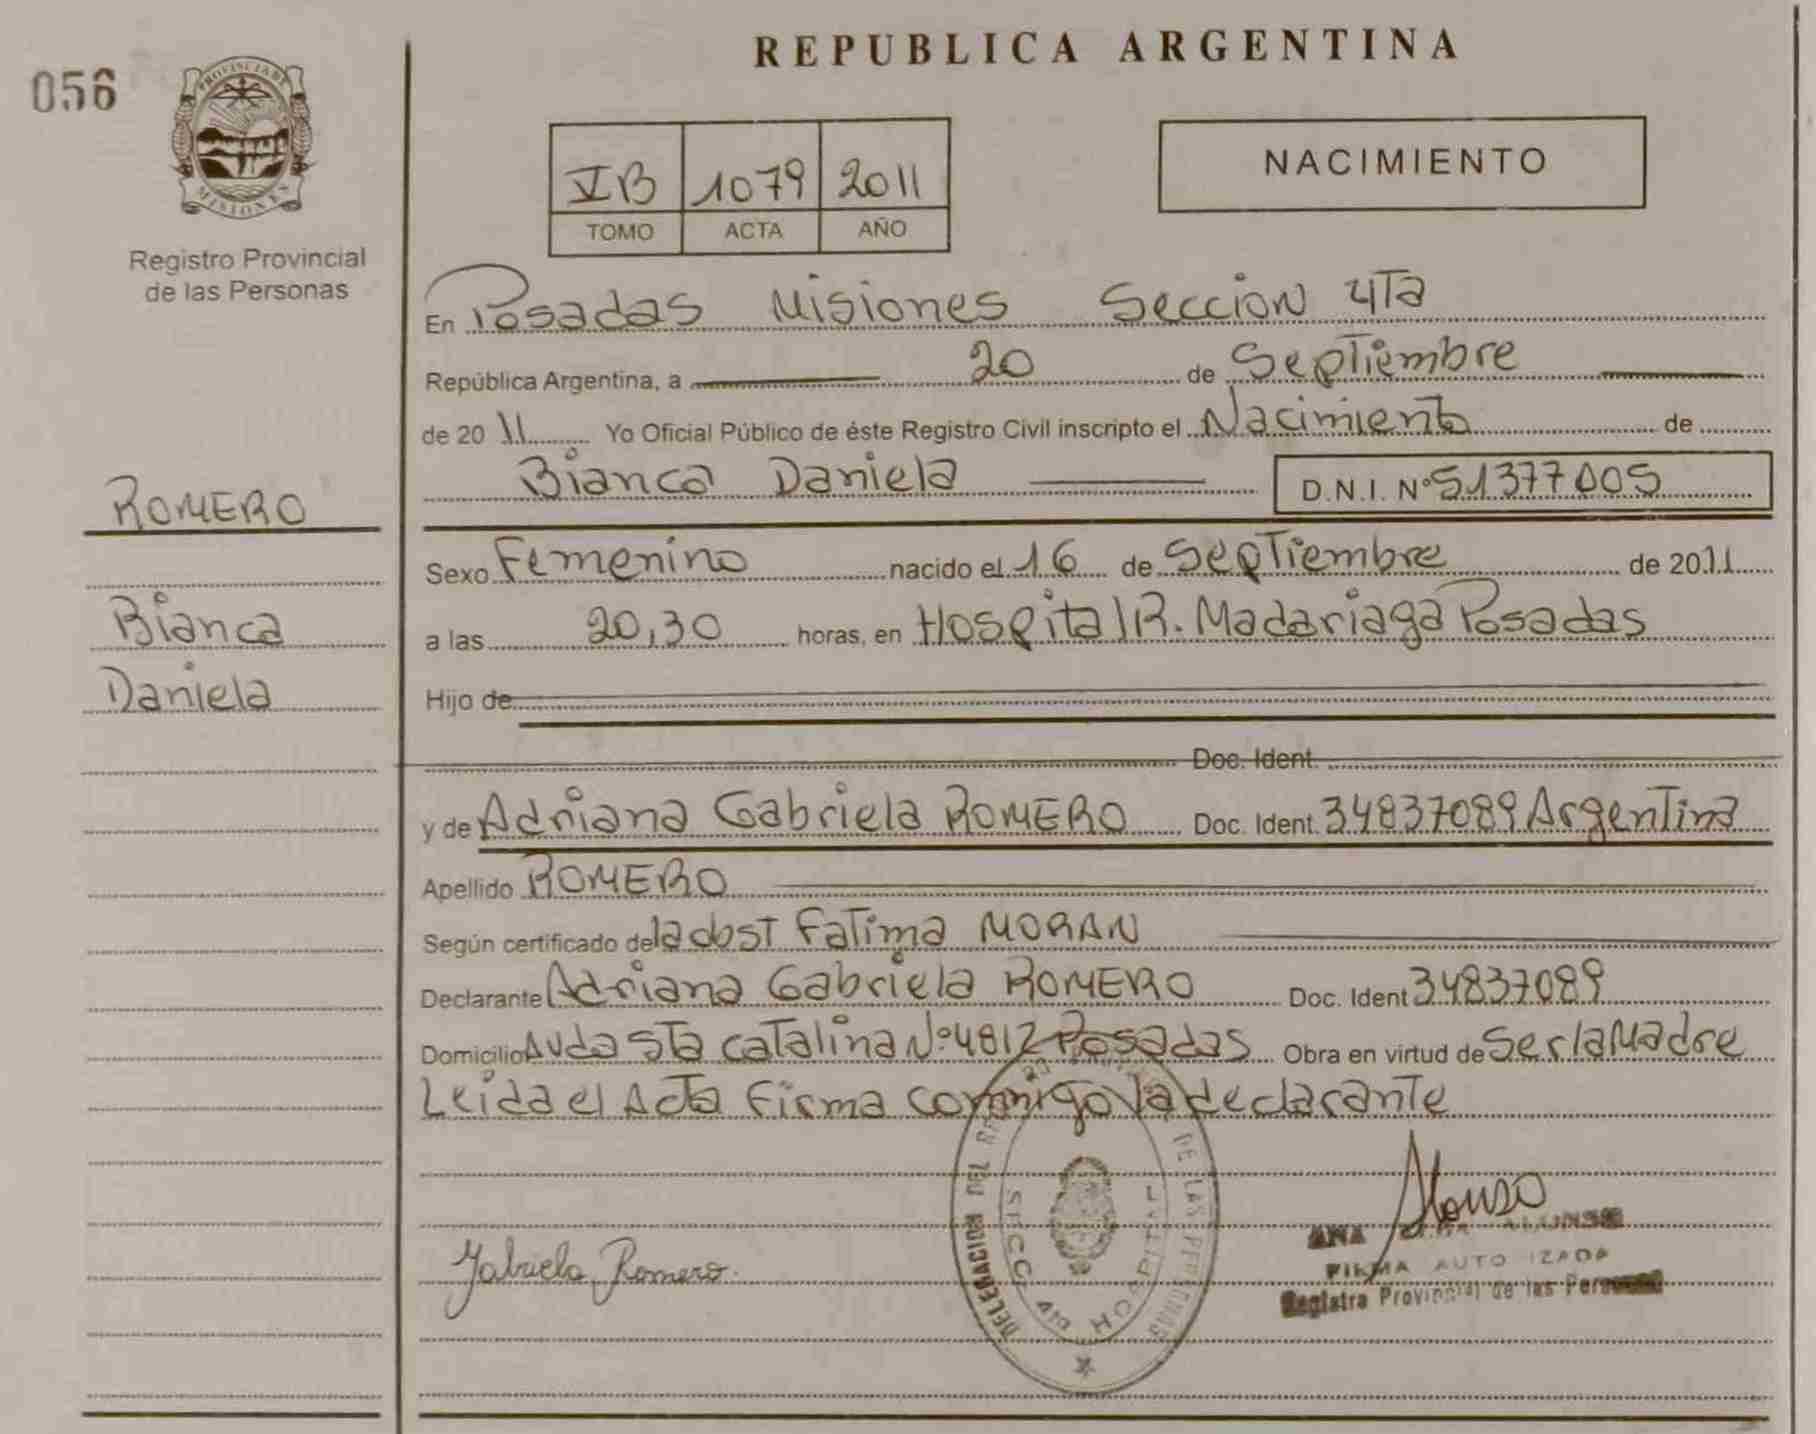 REPUBLICA ARGENTINA
056
PROVINCIA DE
MISIONES
Registro Provincial
de las Personas
NACIMIENTO
VB 1079 2011
TOMO ACTA AÑO
En Posadas Misiones Seccion 4Ta
República Argentina, a 20 de Septiembre
de 20 11 Yo Oficial Público de éste Registro Civil inscripto el Nacimiento de
Bianca Daniela D.N.I. Nº 51377005
ROMERO
Bianca
Daniela
Sexo Femenino nacido el 16 de Septiembre de 2011
a las 20,30 horas, en Hospital R. Madariaga Posadas
Hijo de
Doc. Ident.
y de Adriana Gabriela ROMERO Doc. Ident. 34837089 Argentina
Apellido ROMERO
Según certificado de la obst Fatima MORAN
Declarante Adriana Gabriela ROMERO Doc. Ident 34837089
Domicilio Avda Sta Catalina Nº 4812 Posadas Obra en virtud de Ser la Madre
Leida el Acta Firma conmigo la declarante
Gabriela Romero.
DELEGACION DEL DE LAS PERSONAS
SECC 4ta HOSPITAL
Alonso
ANA ALONSO
FIRMA AUTO IZADA
Registro Provincial de las Personas